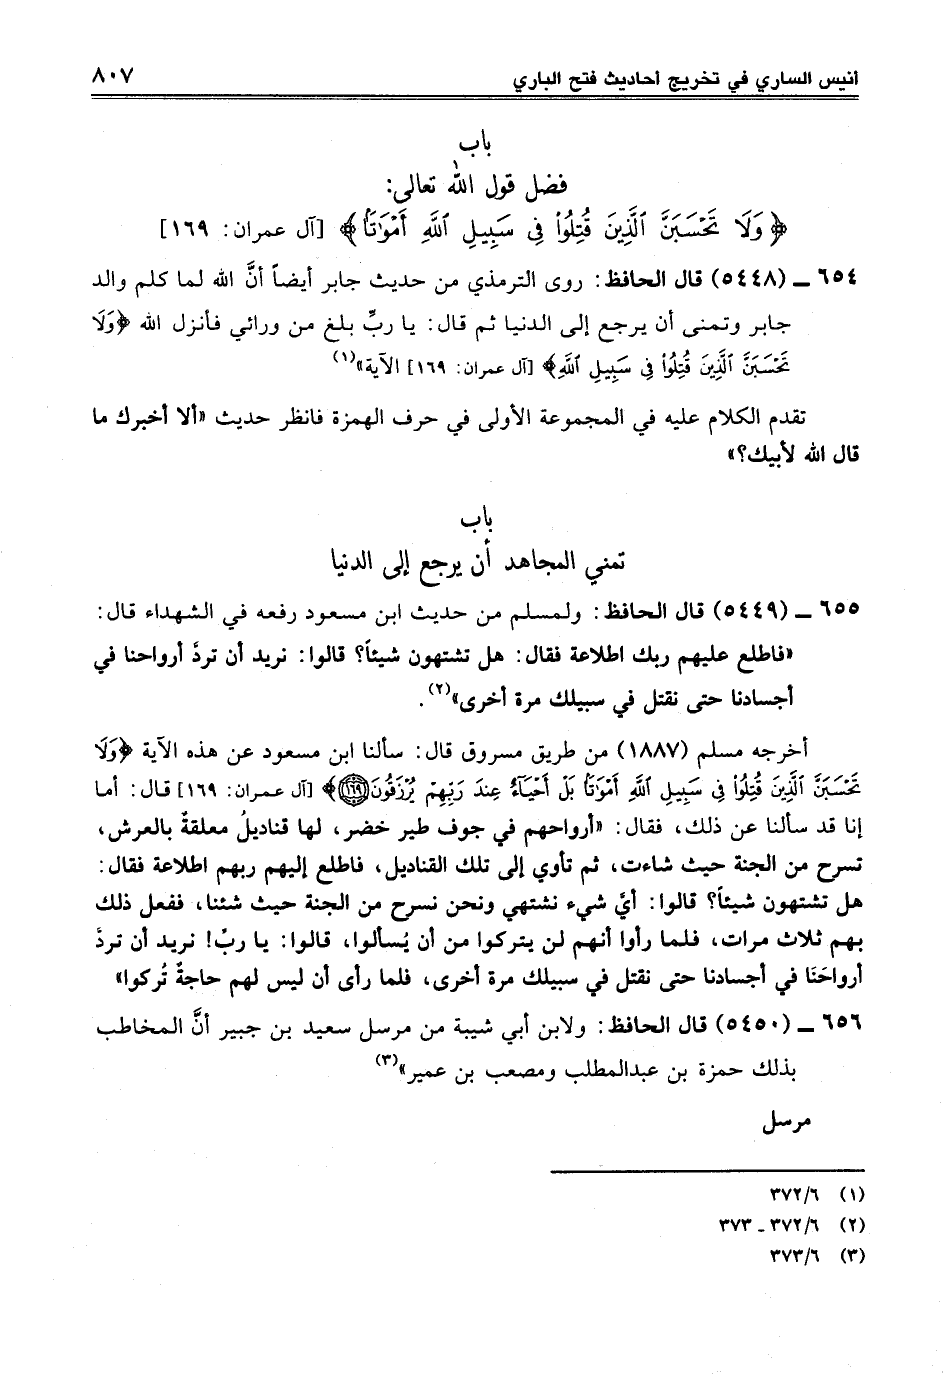 أنيس الساري في تخريج أحاديث فتح الباري ٨٠٧
باب
فضل قول الله تعالى:
﴿وَلَا تَحْسَبَنَّ ٱلَّذِينَ قُتِلُوا۟ فِى سَبِيلِ ٱللَّهِ أَمْوَٰتًۢا﴾ [آل عمران: ١٦٩]
٦٥٤ ــ (٥٤٤٨) قال الحافظ: روى الترمذي من حديث جابر أيضاً أنَّ الله لما كلم والد
جابر وتمنى أن يرجع إلى الدنيا ثم قال: يا ربِّ بلغ من ورائي فأنزل الله ﴿وَلَا
تَحْسَبَنَّ ٱلَّذِينَ قُتِلُوا۟ فِى سَبِيلِ ٱللَّهِ﴾ [آل عمران: ١٦٩] الآية»(١)
تقدم الكلام عليه في المجموعة الأولى في حرف الهمزة فانظر حديث «ألا أخبرك ما
قال الله لأبيك؟»
باب
تمني المجاهد أن يرجع إلى الدنيا
٦٥٥ ــ (٥٤٤٩) قال الحافظ: ولمسلم من حديث ابن مسعود رفعه في الشهداء قال:
«فاطلع عليهم ربك اطلاعة فقال: هل تشتهون شيئاً؟ قالوا: نريد أن تردَّ أرواحنا في
أجسادنا حتى نقتل في سبيلك مرة أخرى»(٢).
أخرجه مسلم (١٨٨٧) من طريق مسروق قال: سألنا ابن مسعود عن هذه الآية ﴿وَلَا
تَحْسَبَنَّ ٱلَّذِينَ قُتِلُوا۟ فِى سَبِيلِ ٱللَّهِ أَمْوَٰتًۢا بَلْ أَحْيَآءٌ عِندَ رَبِّهِمْ يُرْزَقُونَ ١٦٩﴾ [آل عمران: ١٦٩] قال: أما
إنا قد سألنا عن ذلك، فقال: «أرواحهم في جوف طير خضر، لها قناديلُ معلقةٌ بالعرش،
تسرح من الجنة حيث شاءت، ثم تأوي إلى تلك القناديل، فاطلع إليهم ربهم اطلاعة فقال:
هل تشتهون شيئاً؟ قالوا: أيَّ شيء نشتهي ونحن نسرح من الجنة حيث شئنا، ففعل ذلك
بهم ثلاث مرات، فلما رأوا أنهم لن يتركوا من أن يُسألوا، قالوا: يا ربِّ! نريد أن تردَّ
أرواحَنَا في أجسادنا حتى نقتل في سبيلك مرة أخرى، فلما رأى أن ليس لهم حاجةٌ تُركوا»
٦٥٦ ــ (٥٤٥٠) قال الحافظ: ولابن أبي شيبة من مرسل سعيد بن جبير أنَّ المخاطب
بذلك حمزة بن عبدالمطلب ومصعب بن عمير»(٣)
مرسل
(١) ٣٧٢/٦
(٢) ٣٧٢/٦ ـ ٣٧٣
(٣) ٣٧٣/٦